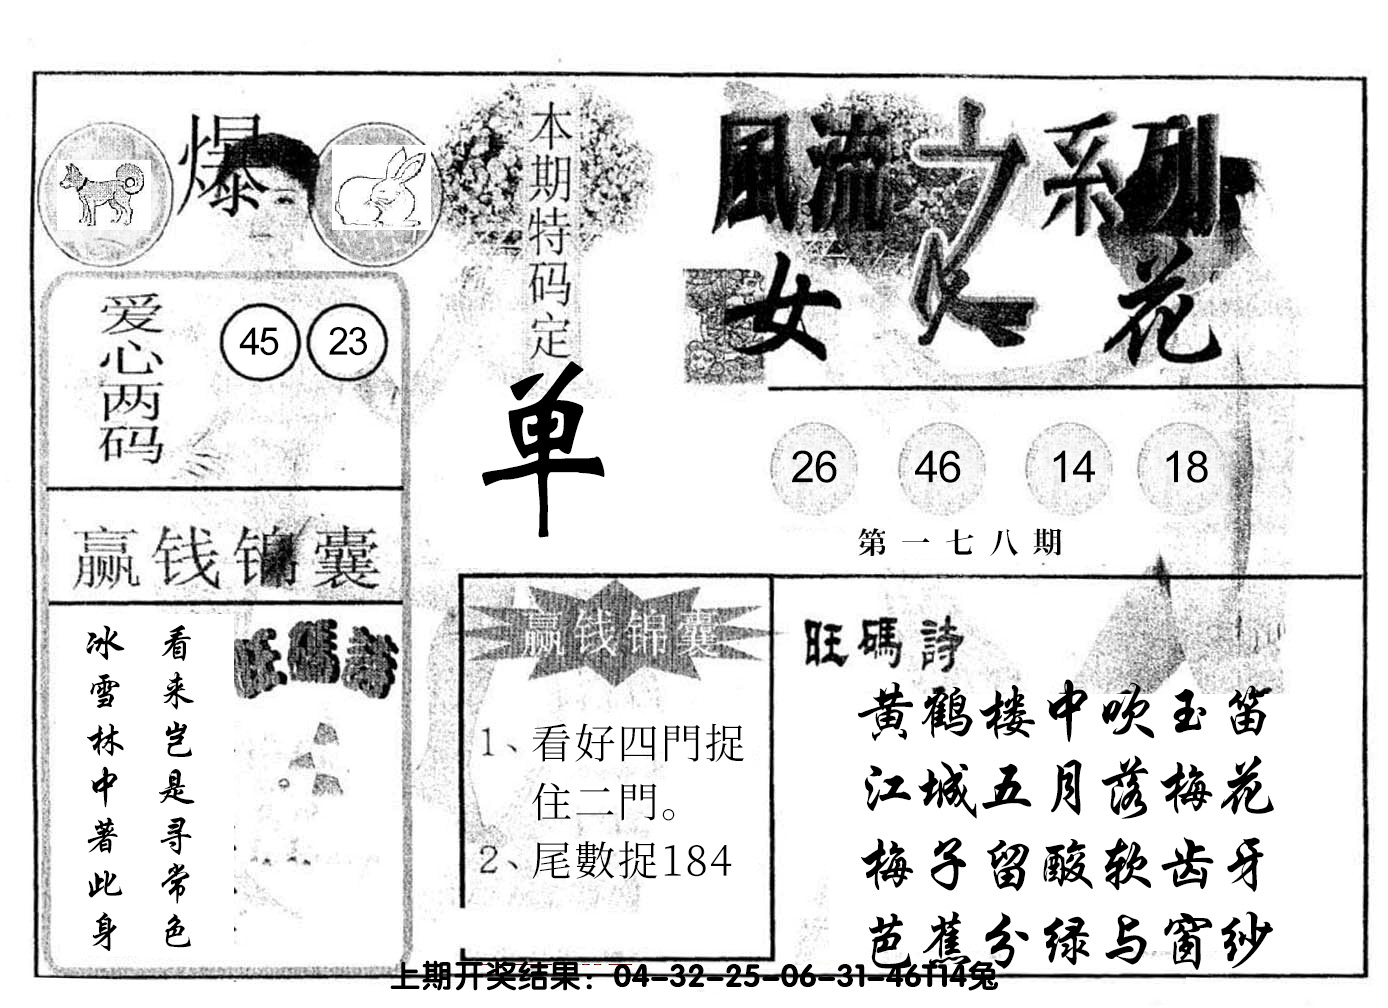 爆
本期特码定
单
風流之系列
女人花
爱心两码
45 23
26 46 14 18
第一七八期
赢钱锦囊
看来岂是寻常色
冰雪林中著此身
旺碼詩
赢钱锦囊
1、看好四門捉
住二門。
2、尾數捉184
旺碼詩
黄鹤楼中吹玉笛
江城五月落梅花
梅子留酸软齿牙
芭蕉分绿与窗纱
上期开奖结果：04-32-25-06-31-46T14兔